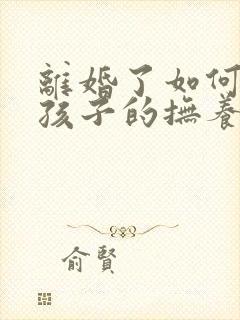 離婚了如何
孩子的撫養
俞賢